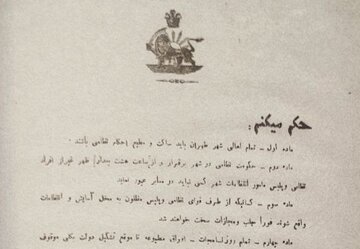 حکم میکنم :
ماده اول - تمام اهالی شهر طهران باید ساکت و مطیع احکام نظامی باشند .
ماده دوم - حکومت نظامی در شهر برقرار و از ساعت هشت بعداز ظهر غیر از افراد
نظامی و پلیس مامور انتظامات شهر کسی نباید در معابر عبور نماید
ماده سوم - کسانیکه از طرف قوای نظامی و پلیس مظنون به مخل آسایش و انتظامات
واقع شوند فوراً جلب و مجازات سخت خواهند شد
ماده چهارم - تمام روزنامجات - اوراق مطبوعه تا موقع تشکیل دولت بکلی موقوف